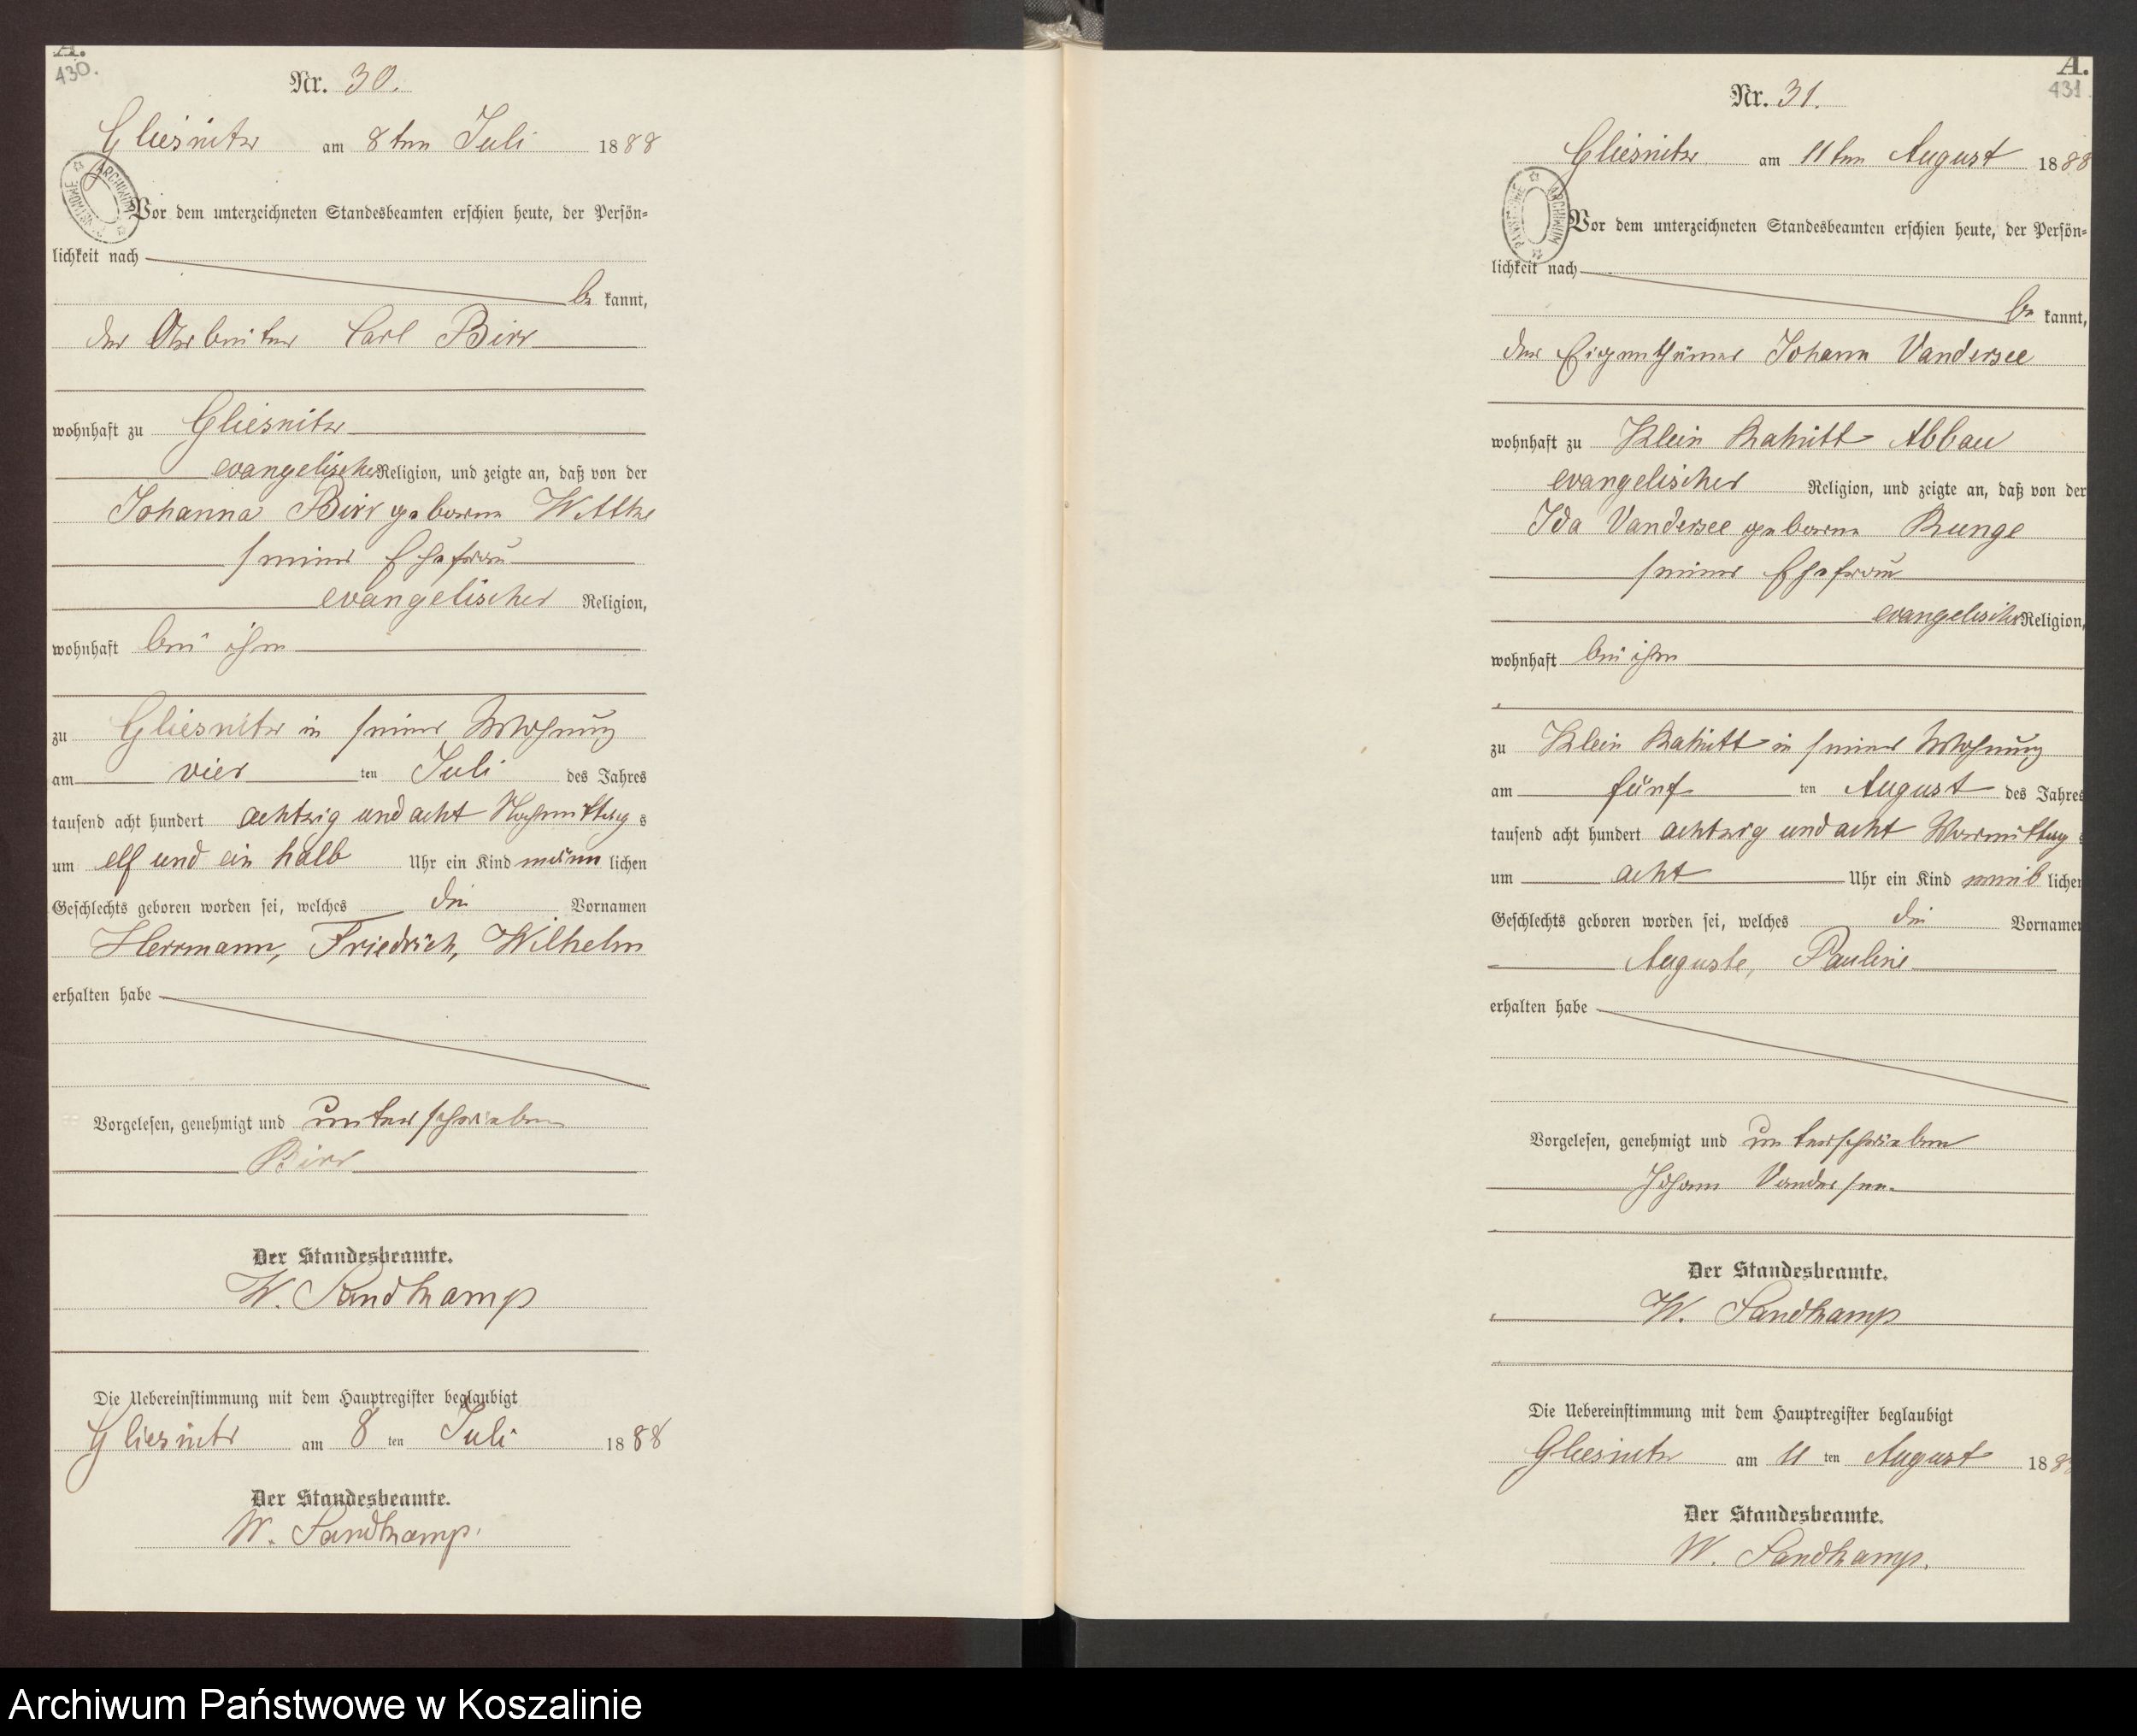 A.
430.
Nr. 30.
Gliesnitz am 8ten Juli 1888
ARCHIWUM PAŃSTWOWE
Vor dem unterzeichneten Standesbeamten erschien heute, der Persön-
lichkeit nach
be kannt,
der Arbeiter Carl Birr
wohnhaft zu Gliesnitz
evangelischer Religion, und zeigte an, daß von der
Johanna Birr geborne Witthe
seiner Ehefrau
evangelischer Religion,
wohnhaft bei ihm
zu Gliesnitz in seiner Wohnung
am vier ten Juli des Jahres
tausend acht hundert achtzig und acht Nachmittag s
um elf und ein halb Uhr ein Kind männ lichen
Geschlechts geboren worden sei, welches die Vornamen
Herrmann, Friedrich, Wilhelm
erhalten habe
Vorgelesen, genehmigt und unterschrieben
Birr
Der Standesbeamte.
W. Sandkamp
Die Uebereinstimmung mit dem Hauptregister beglaubigt
Gliesnitz am 8 ten Juli 1888
Der Standesbeamte.
W. Sandkamp.
A.
431.
Nr. 31.
Gliesnitz am 11ten August 1888
ARCHIWUM PAŃSTWOWE
Vor dem unterzeichneten Standesbeamten erschien heute, der Persön-
lichkeit nach
be kannt,
der Eigenthümer Johann Vandersee
wohnhaft zu Klein Rakitt Abbau
evangelischer Religion, und zeigte an, daß von der
Ida Vandersee geborne Runge
seiner Ehefrau
evangelischer Religion,
wohnhaft bei ihm
zu Klein Rakitt in seiner Wohnung
am fünf ten August des Jahres
tausend acht hundert achtzig und acht Vormittag
um acht Uhr ein Kind weib lichen
Geschlechts geboren worden sei, welches die Vornamen
Auguste, Pauline
erhalten habe
Vorgelesen, genehmigt und unterschrieben
Johann Vandersee.
Der Standesbeamte.
W. Sandkamp
Die Uebereinstimmung mit dem Hauptregister beglaubigt
Gliesnitz am 11 ten August 188
Der Standesbeamte.
W. Sandkamp.
Archiwum Państwowe w Koszalinie